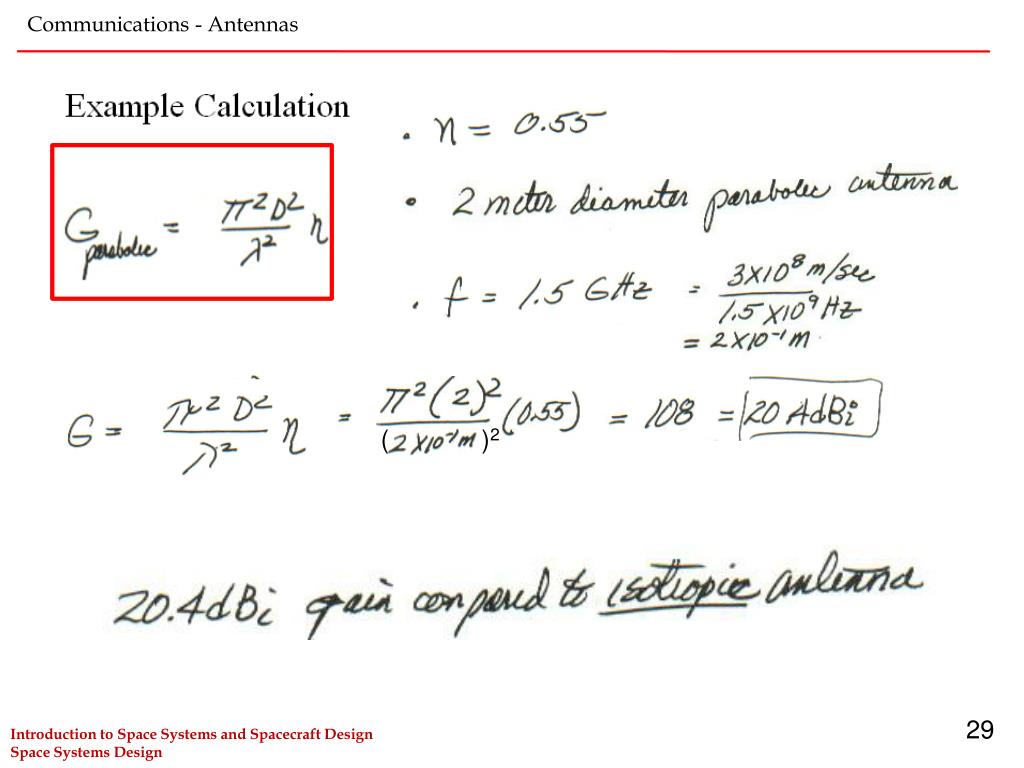 Communications - Antennas
Example Calculation
• η = 0.55
G parabolic = π²D²/λ² η
• 2 meter diameter parabolic antenna
• f = 1.5 GHz = 3X10⁸ m/sec / 1.5X10⁹ Hz
= 2X10⁻¹ m
G = π² D²/λ² η = π²(2)²/(2X10⁻¹m)² (0.55) = 108 = 20.4dBi
20.4dBi gain compared to isotropic antenna
Introduction to Space Systems and Spacecraft Design
Space Systems Design
29